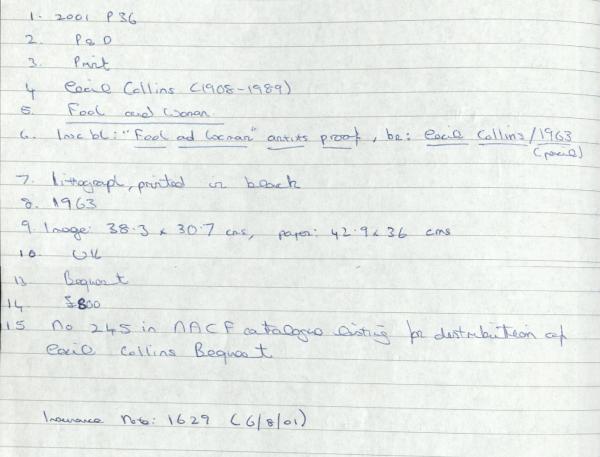 1. 2001 P36
2. P&D
3. Print
4 Cecil Collins (1908-1989)
5. Fool and Woman
6. Insc bl: "Fool ad Woman" artists proof, br: Cecil Collins/1963
(pencil)
7. lithograph, printed in black
8. 1963
9 Image: 38.3 x 30.7 cms, paper: 42.9 x 36 cms
10. UK
13 Bequest
14. £800
15 No 245 in NACF catalogue listing for distribution of
Cecil Collins Bequest
Insurance Note: 1629 (6/8/01)